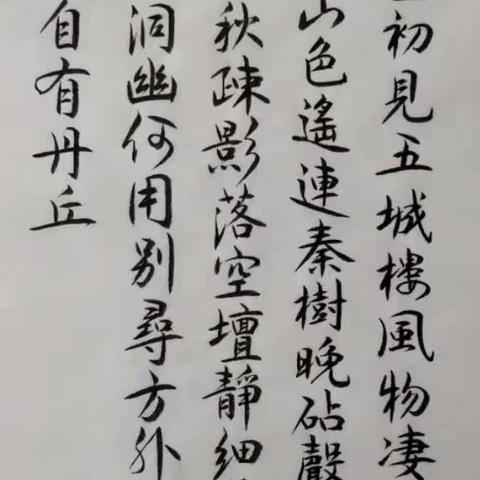 初見五城樓風物淒
山色遙連秦樹晚砧聲
秋疎影落空壇靜細
洞幽何用別尋方外
自有丹丘